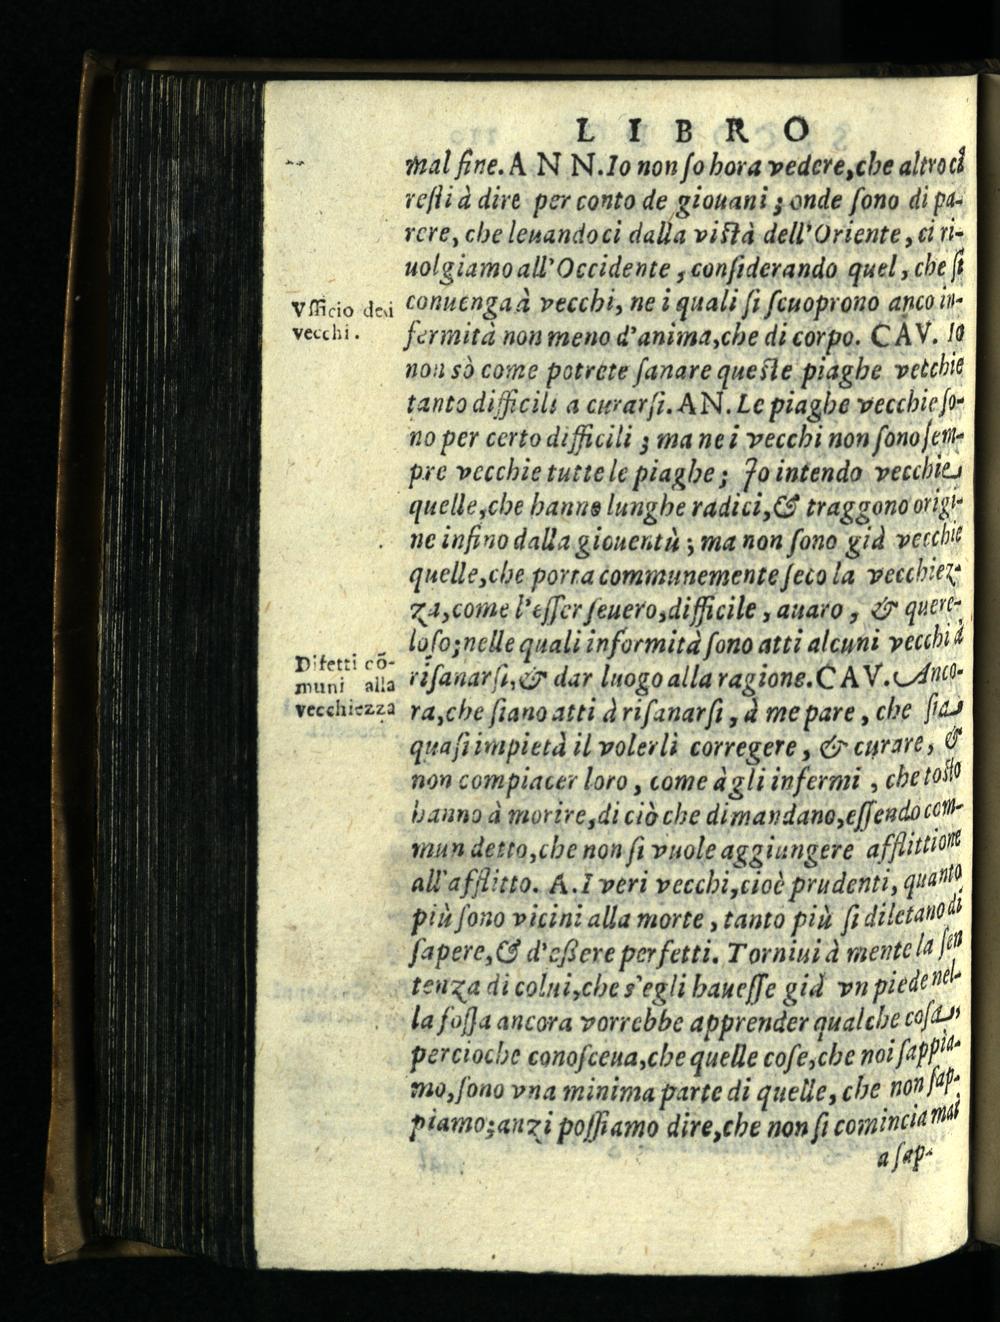 LIBRO
mal fine. ANN. Io non ſo hora vedere, che altro ci
reſti à dire per conto de giouani; onde ſono di pa-
rere, che leuandoci dalla viſtà dell'Oriente, ci ri-
uolgiamo all'Occidente, conſiderando quel, che ſi
Vfficio dei
vecchi.
conuenga à vecchi, ne i quali ſi ſcuoprono anco in-
fermità non meno d'anima, che di corpo. CAV. Io
non sò come potrete ſanare queſte piaghe vecchie
tanto difficili a curarſi. AN. Le piaghe vecchie ſo-
no per certo difficili; ma ne i vecchi non ſono ſem-
pre vecchie tutte le piaghe; Io intendo vecchie
quelle, che hanno lunghe radici, & traggono origi-
ne infino dalla giouentù; ma non ſono già vecchie
quelle, che porta communemente ſeco la vecchiez-
za, come l'eſſer ſeuero, difficile, auaro, & quere-
loſo; nelle quali informità ſono atti alcuni vecchi à
Difetti cõ-
muni alla
vecchiezza
riſanarſi, & dar luogo alla ragione. CAV. Anco-
ra, che ſiano atti à riſanarſi, à me pare, che ſia
quaſi impietà il volerli corregere, & curare, &
non compiacer loro, come à gli infermi, che toſto
hanno à morire, di ciò che dimandano, eſſendo com-
mun detto, che non ſi vuole aggiungere afflittione
all'afflitto. A. I veri vecchi, cioè prudenti, quanto
più ſono vicini alla morte, tanto più ſi diletano di
ſapere, & d'eßere perfetti. Torniui à mente la ſen
tenza di colui, che s'egli haueſſe già vn piede nel-
la foſſa ancora vorrebbe apprender qualche coſa,
percioche conoſceua, che quelle coſe, che noi ſappia-
mo, ſono vna minima parte di quelle, che non ſap-
piamo; anzi poſſiamo dire, che non ſi comincia mai
a ſap-